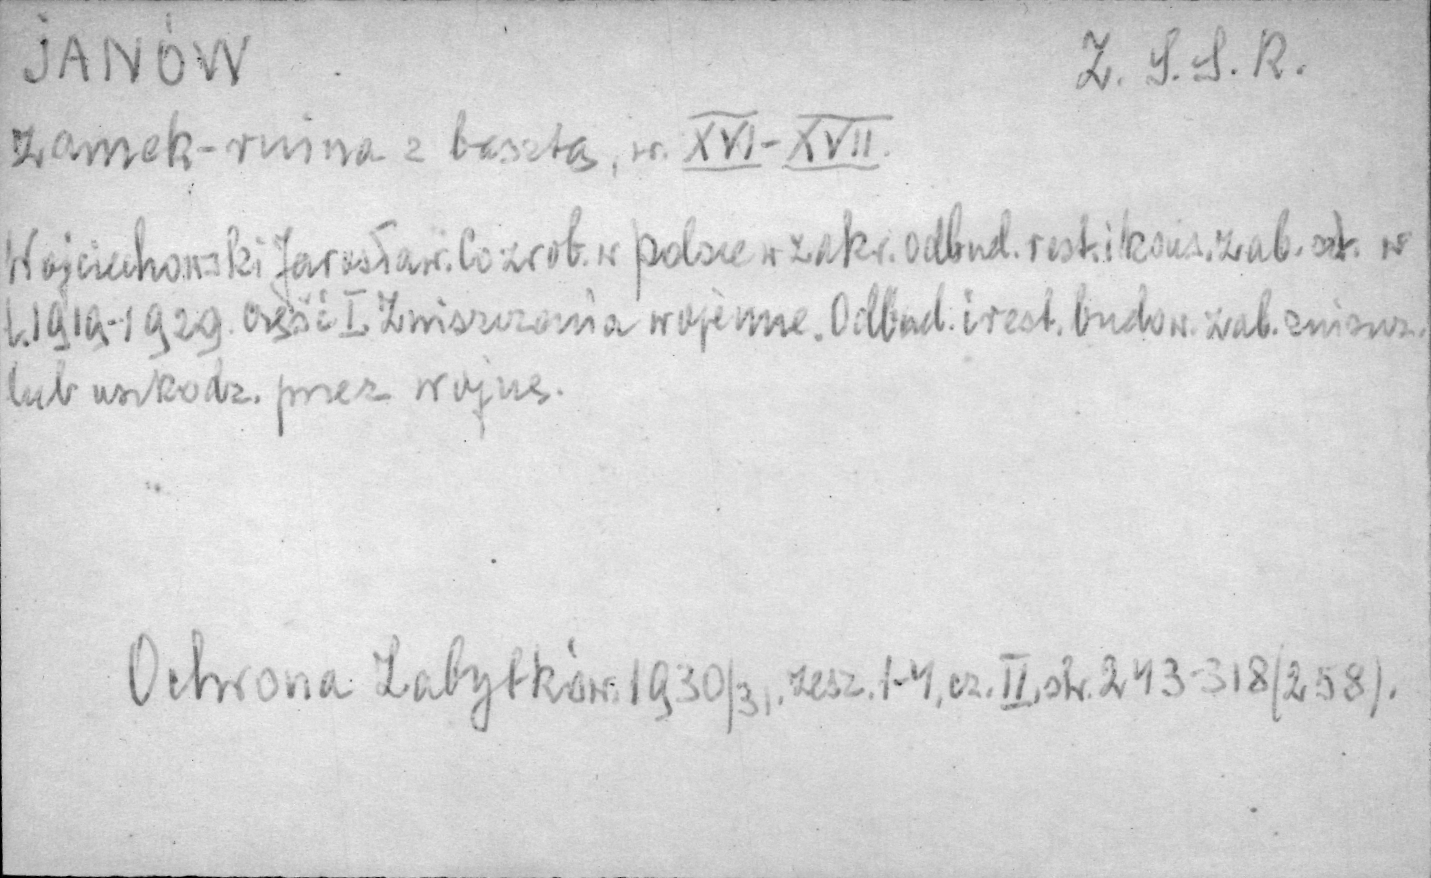 JANÓW Z. S. S. R.
Zamek-ruina z basztą, w. XVI-XVII.
Wojciechowski Jarosław. Co zrob. w Polsce w zakr. odbud. rest. i kons. zab. szt. w
l. 1919-1929. Część I. Zniszczenia wojenne. Odbud. i rest. budow. zab. zniszcz.
lub uszkodz. przez wojnę.
Ochrona Zabytków. 1930/31. zesz. 1-4, cz. II, str. 243-318 (258).